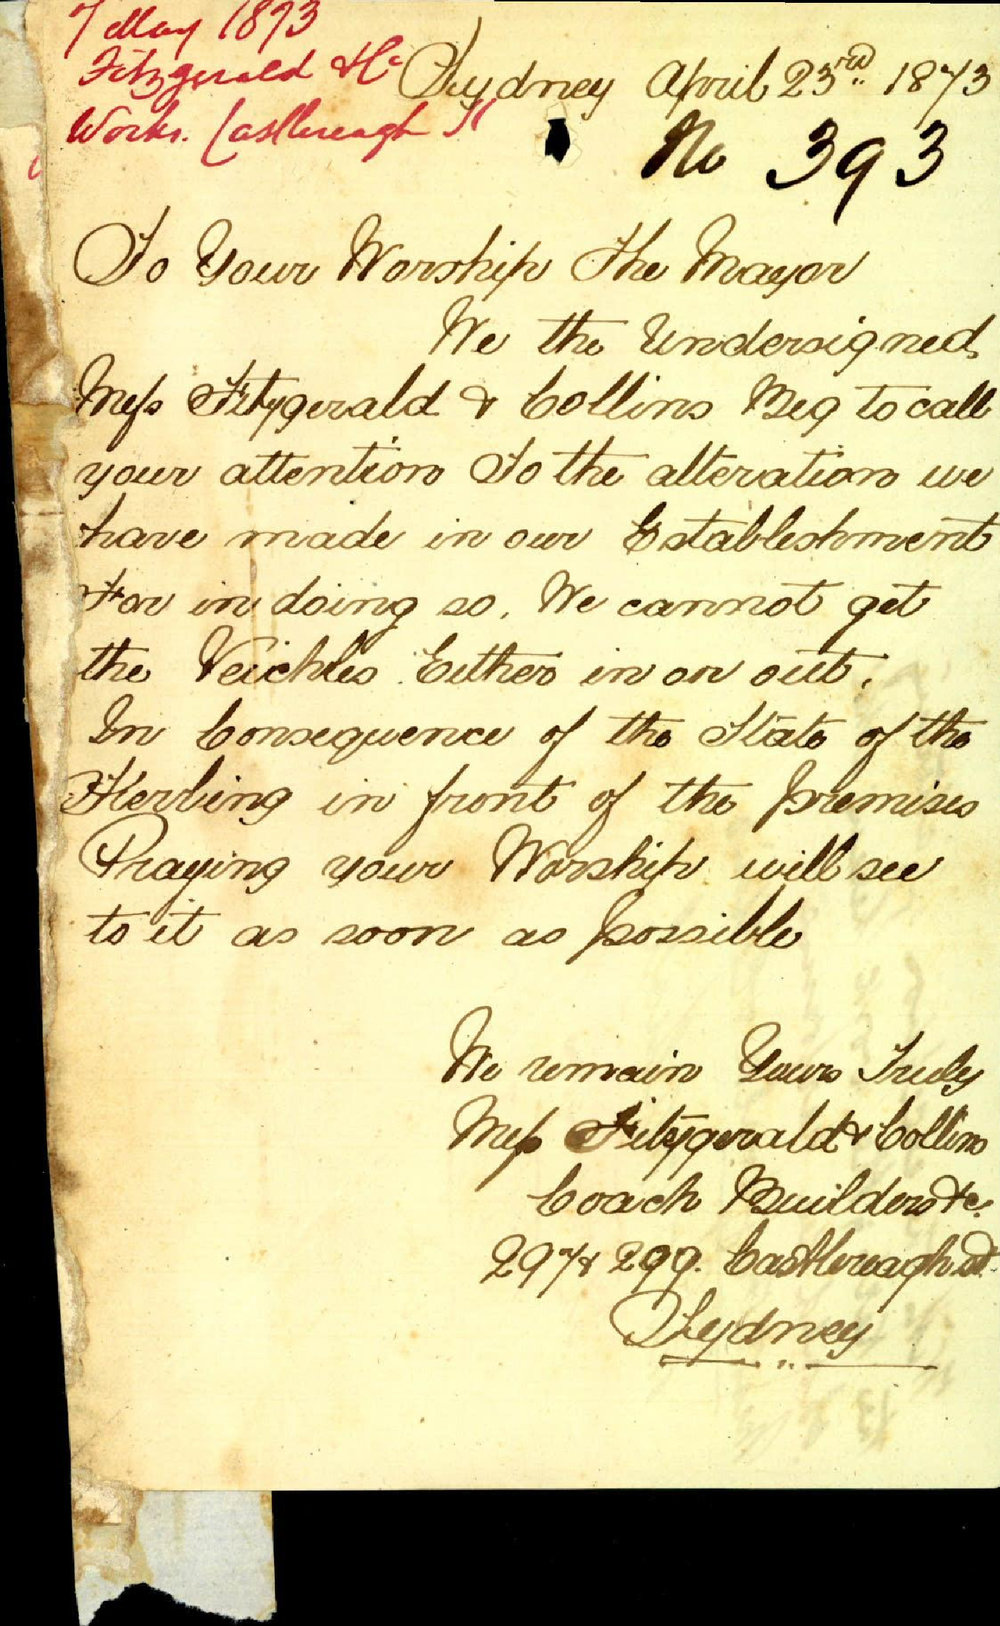 7 May 1873
Fitzgerald &c
Works. Castlereagh St
Sydney April 23rd. 1873
No 393
To Your Worship The Mayor
We the Undersigned
Mess Fitzgerald & Collins Beg to call
your attention To the alteration we
have made in our Establishment
For in doing so. We cannot get
the Veichles Either in or out.
In Consequence of the State of the
Kerbing in front of the premises
Praying your Worship will see
to it as soon as possible
We remain Yours Truly
Mess Fitzgerald & Collins
Coach Builders &c.
297 & 299. Castlereagh st.
Sydney